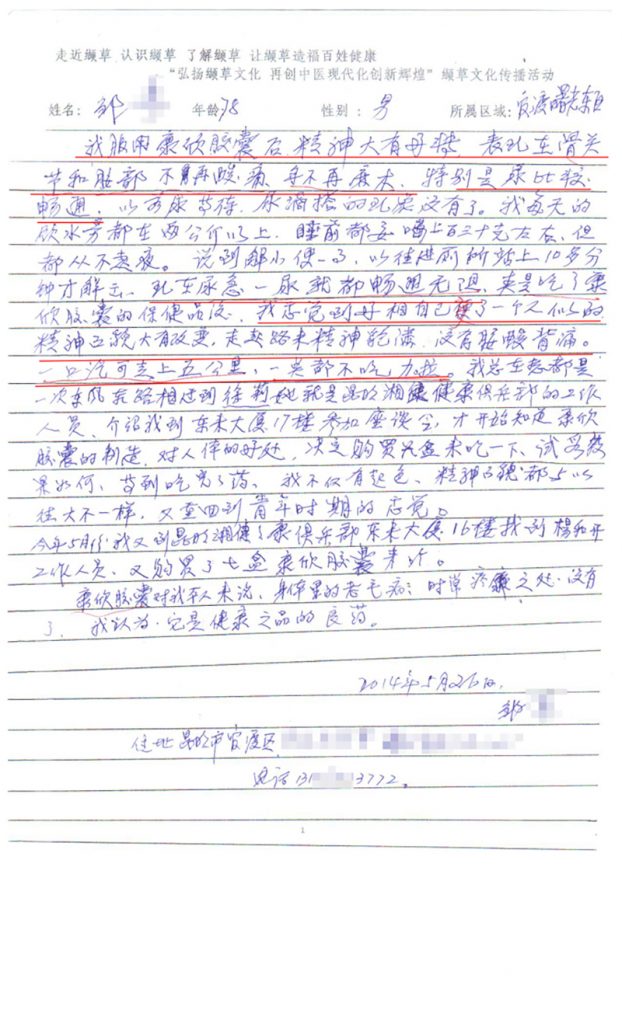 走近缬草 认识缬草 了解缬草 让缬草造福百姓健康
“弘扬缬草文化 再创中医现代化创新辉煌”缬草文化传播活动
姓名：邹 年龄78 性别：男 所属区域：官渡
我服用康欣胶囊后，精神大有好转，表现在骨关
节和腿部不再酸痛，再不再麻木，特别是尿比较
畅通，以前尿节，尿滴搭的现象没有了。我每天的
饮水劳都在两公斤以上，睡前都要喝上百三十克左右，但
都从不起夜。说到解小便一事，以往进厕所站上10多分
钟才解出，现在尿急一尿就都畅通无阻，真是吃了康
欣胶囊的保健品后，我感觉到好相自己变了一个人似的
精神面貌大有改变，走起路来精神轮满，没有腰酸背痛。
一口汽可走上五公里，一点都不吃力。我总在想都是
一次东风东路相过到她就是昆明湘健健康俱乐部的工作
人员，介绍我到东来大厦17楼参加座谈会，才开始知道康欣
胶囊的制造，对人体的好处，决定购买六盒来吃一下，试
果如何，当到吃完了药，我不仅有起色，精神面貌都与以
往大不一样，又至回到青年时期的感觉。
今年5月份，我又到昆明湘健健康俱乐部东来大厦16楼找到杨和平
工作人员，又购买了七盒康欣胶囊来吃。
康欣胶囊对我本人来说，身体里的老毛病，时常疼痛之处没有
了，我认为它是健康之品的良药。
2014年5月26日，
邹
住地昆明市官渡区
电话13 3772。
1